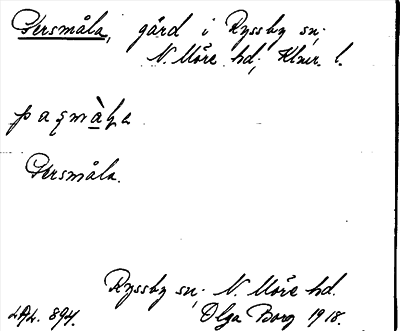 Persmåla, gård i Ryssby sn;
N. Möre hd; Klmr. l.
Persmåla.
Ryssby sn; N. Möre hd.
LAL. 894. Olga Borg 1918.